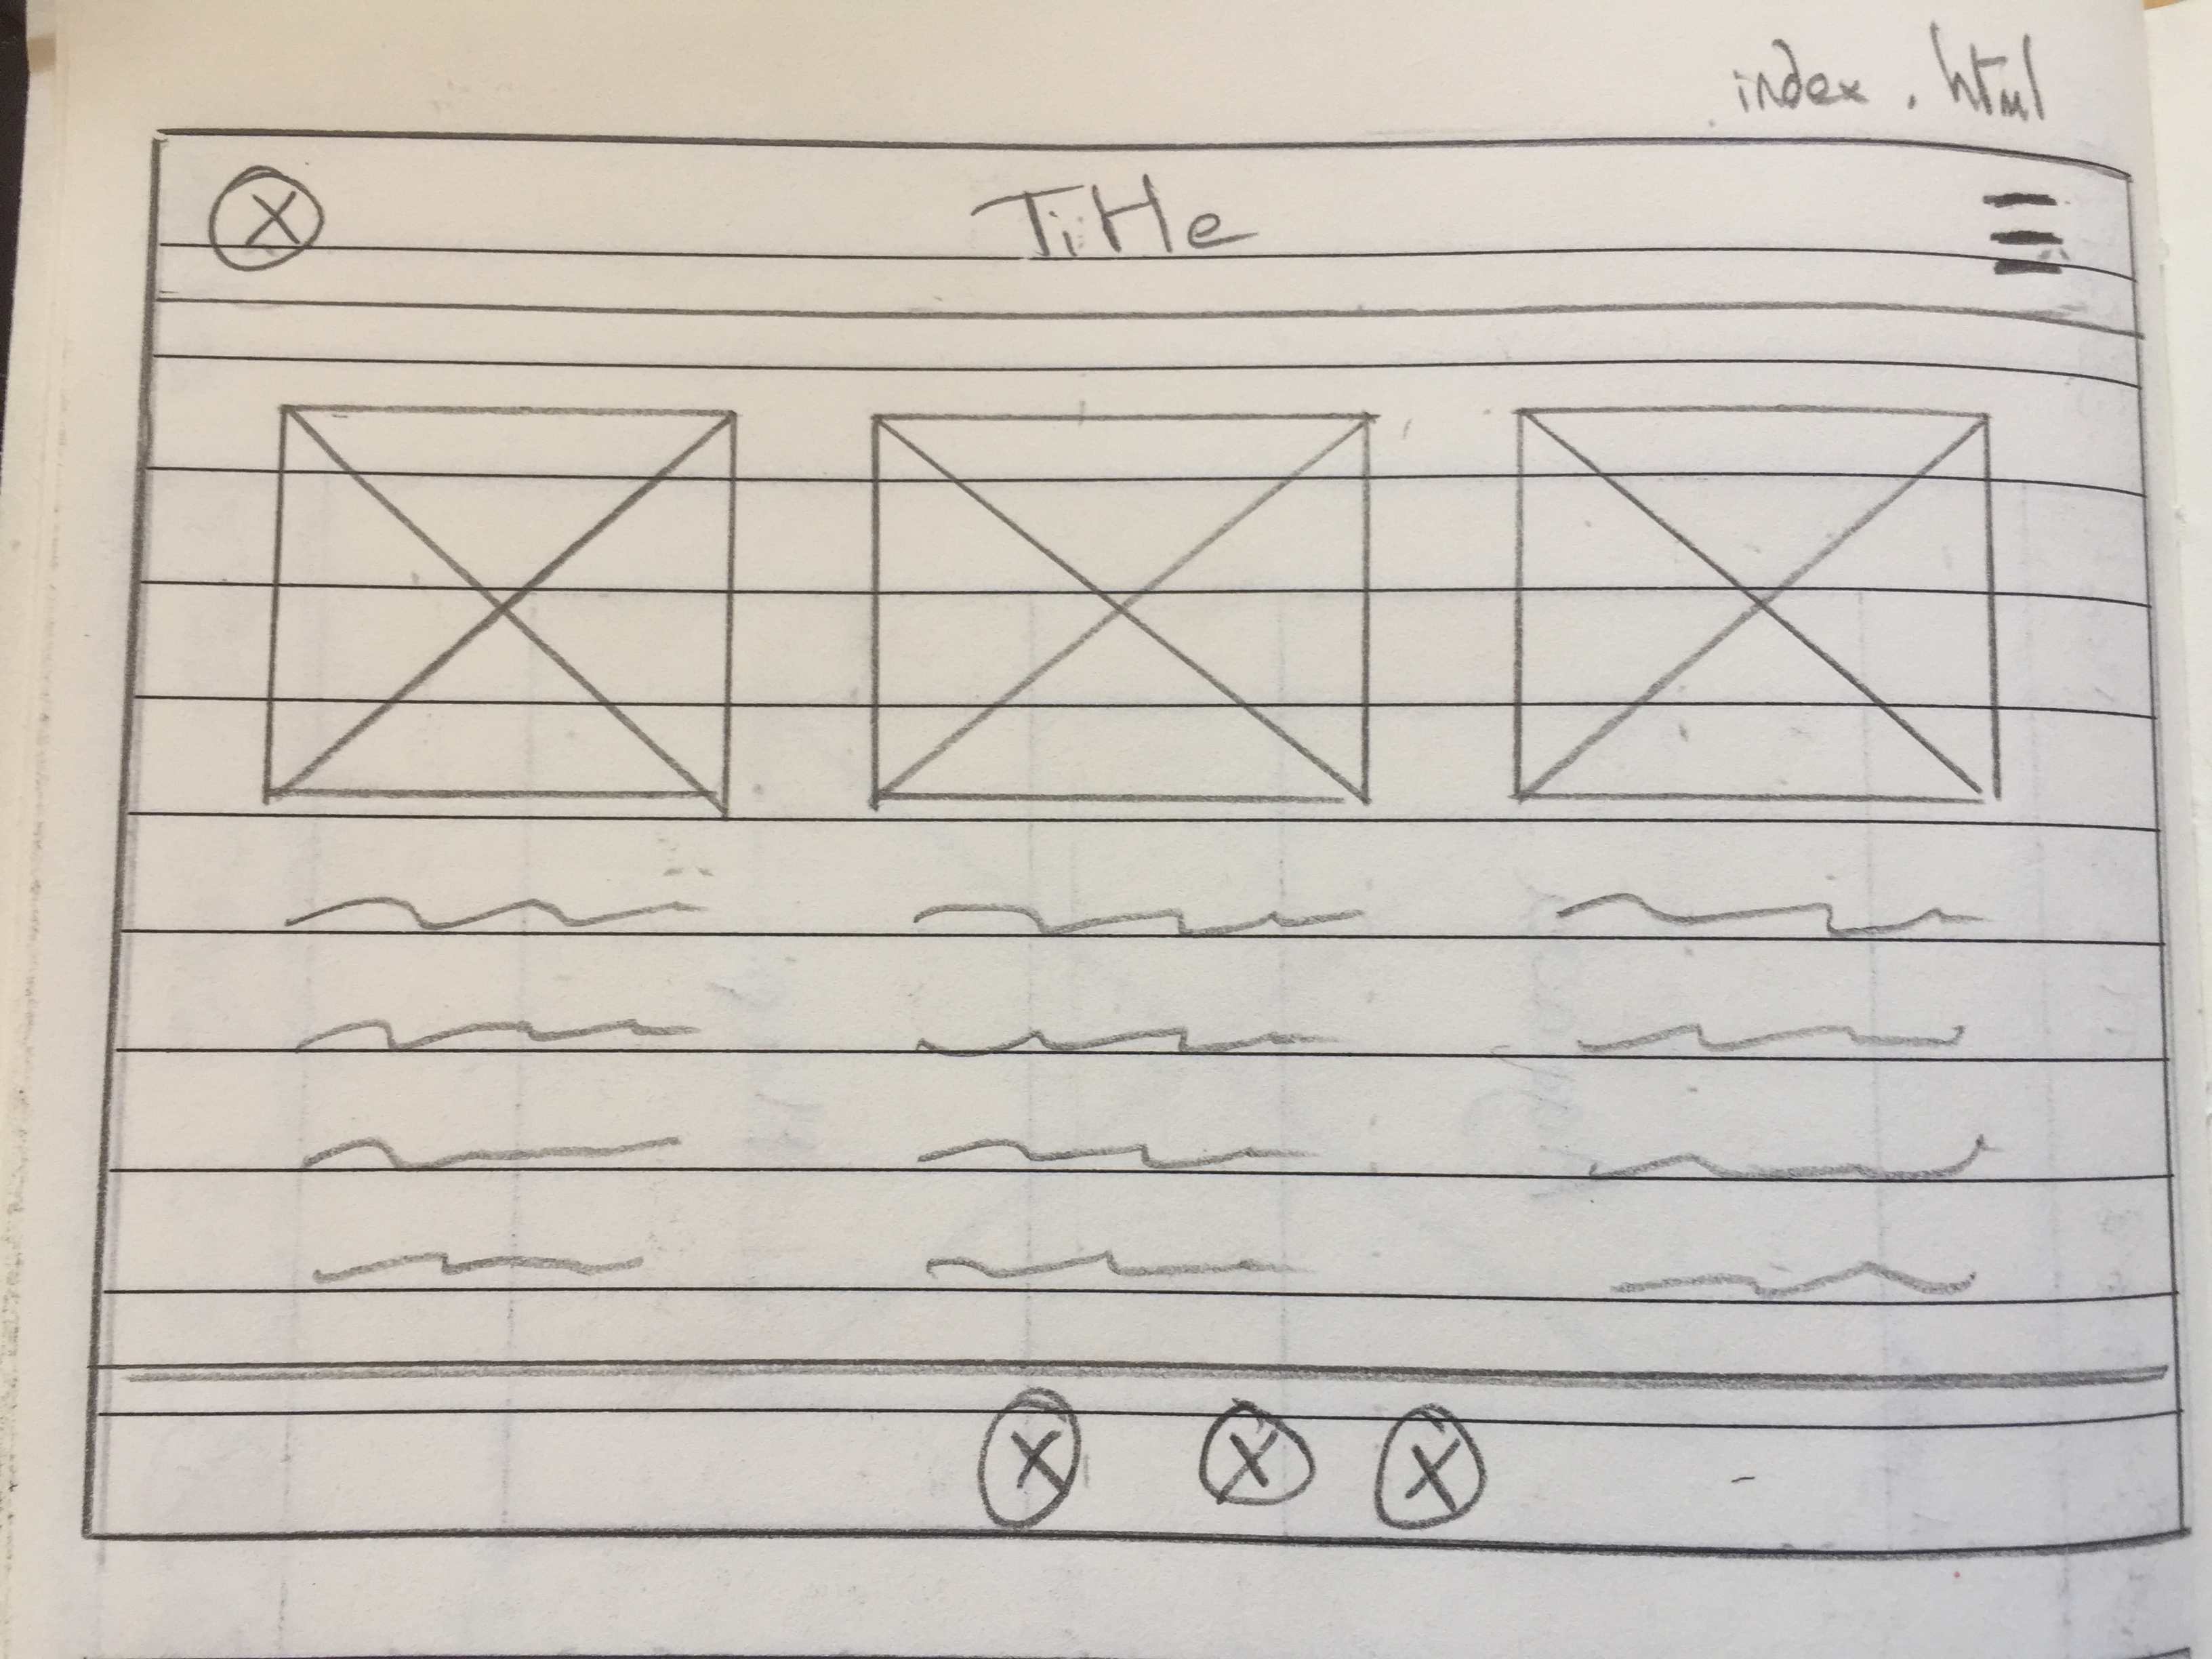 index.html
Title